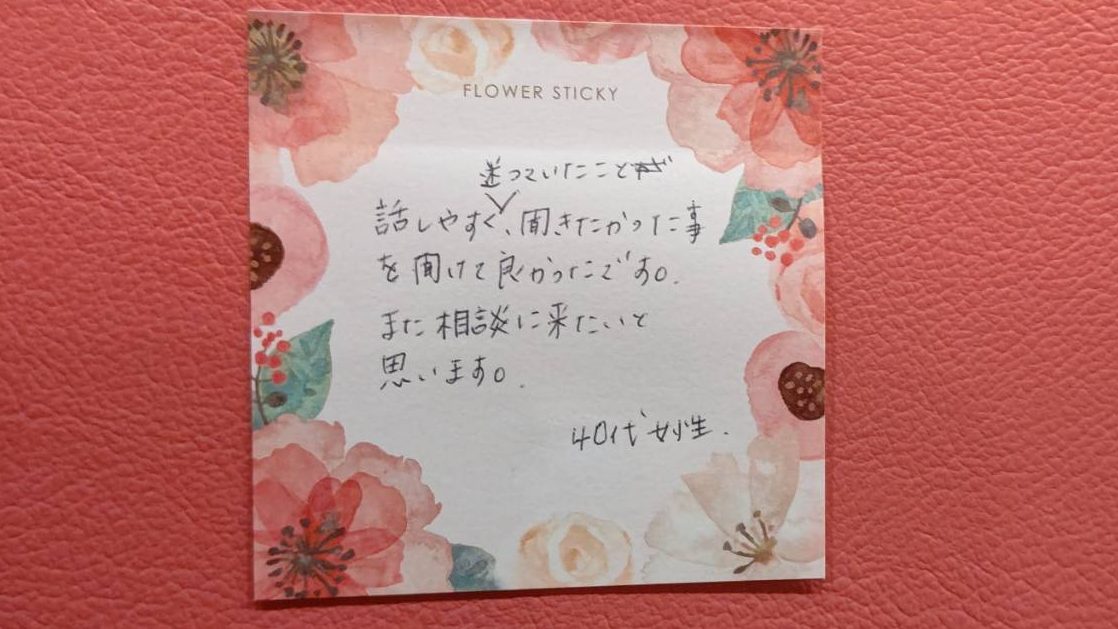 FLOWER STICKY
迷っていたこと
話しやすく、聞きたかった事
を聞けて良かったです。
また相談に来たいと
思います。
40代女性.